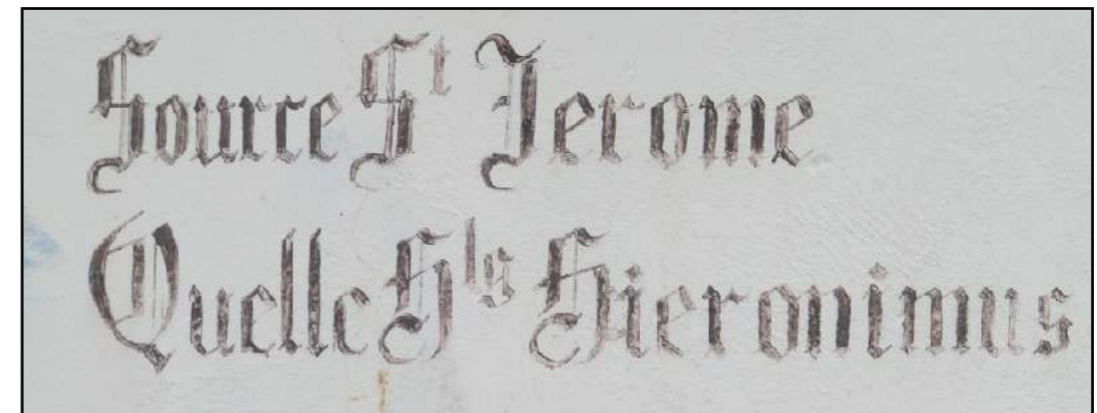 Source St Jerome
Quelle Hlg Hieronimus